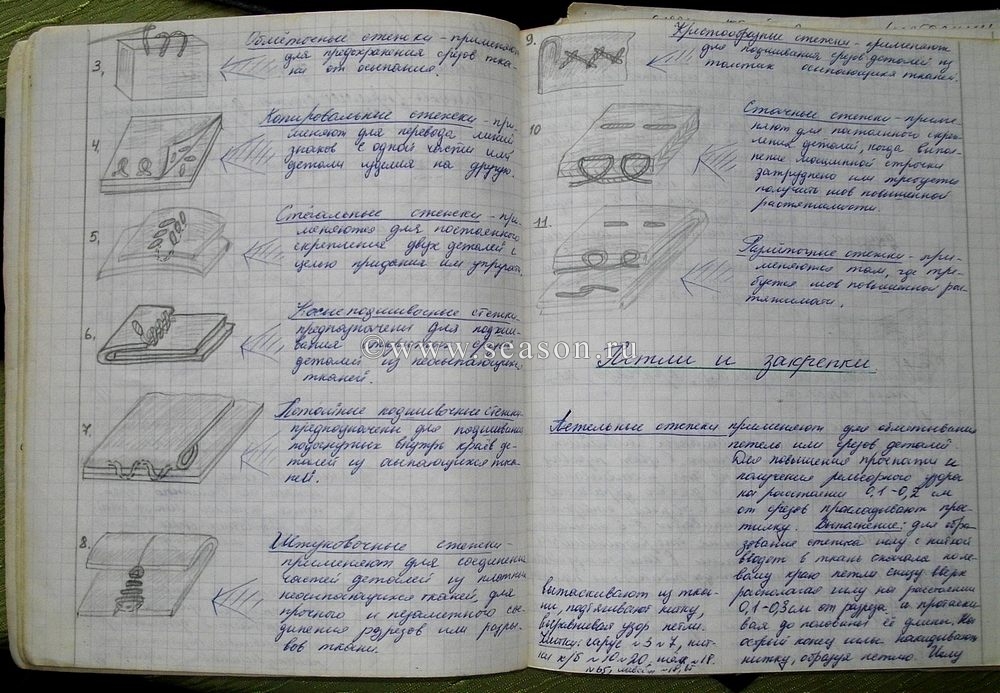 3,
Обмёточные стежки - применяют
для предохранения срезов тка-
ни от осыпания.
4,
Копировальные стежки - при-
меняют для перевода линий
знаков с одной части или
детали изделия на другую.
5,
Стегальные стежки - при-
меняются для постоянного
скрепления двух деталей с
целью придания им упругости
6,
Косые подшивочные стежки -
предназначены для подши-
вания срезов
деталей из неосыпающихся
тканей.
7,
Потайные подшивочные стежки
предназначены для подшивания
подогнутых внутрь краёв де-
талей из осыпающихся тка-
ней.
8,
Штуковочные стежки -
применяют для соединения
частей деталей из плотных
неосыпающихся тканей, для
прочного и незаметного сое-
динения разрезов или разры-
вов ткани.
9.
Крестообразные стежки - применяют
для подшивания срезов деталей из
толстых осыпающихся тканей.
10
Стачные стежки - приме-
няют для постоянного скре-
пления деталей, когда выпол-
нение машинной строчки
затруднено или требуется
получить шов повышенной
растяжимости.
11.
Размёточные стежки - при-
меняются там, где тре-
буется шов повышенной рас-
тяжимости.
©www.season.ru
Петли и закрепки
Петельные стежки применяют для обмётывания
петель или срезов деталей
Для повышения прочности и
получения рельефного узора
на расстоянии 0,1-0,2 см
от срезов прокладывают
Выполнение: для обра-
зования стежка иглу с ниткой
вводят в ткань сначала по ле-
вому краю петли снизу вверх
располагая иглу на расстоянии
0,1-0,3см от разреза, а протаски-
вая до половины её длины. На
острый конец иглы накидывают
нитку, образуя петлю. Иглу
вытаскивают из тка-
ни, подтягивают нитку,
выравнивая узор петли.
Нитки: гарус №3 №7, нит-
ки х/б №10 №20, шелк №18.
№65,